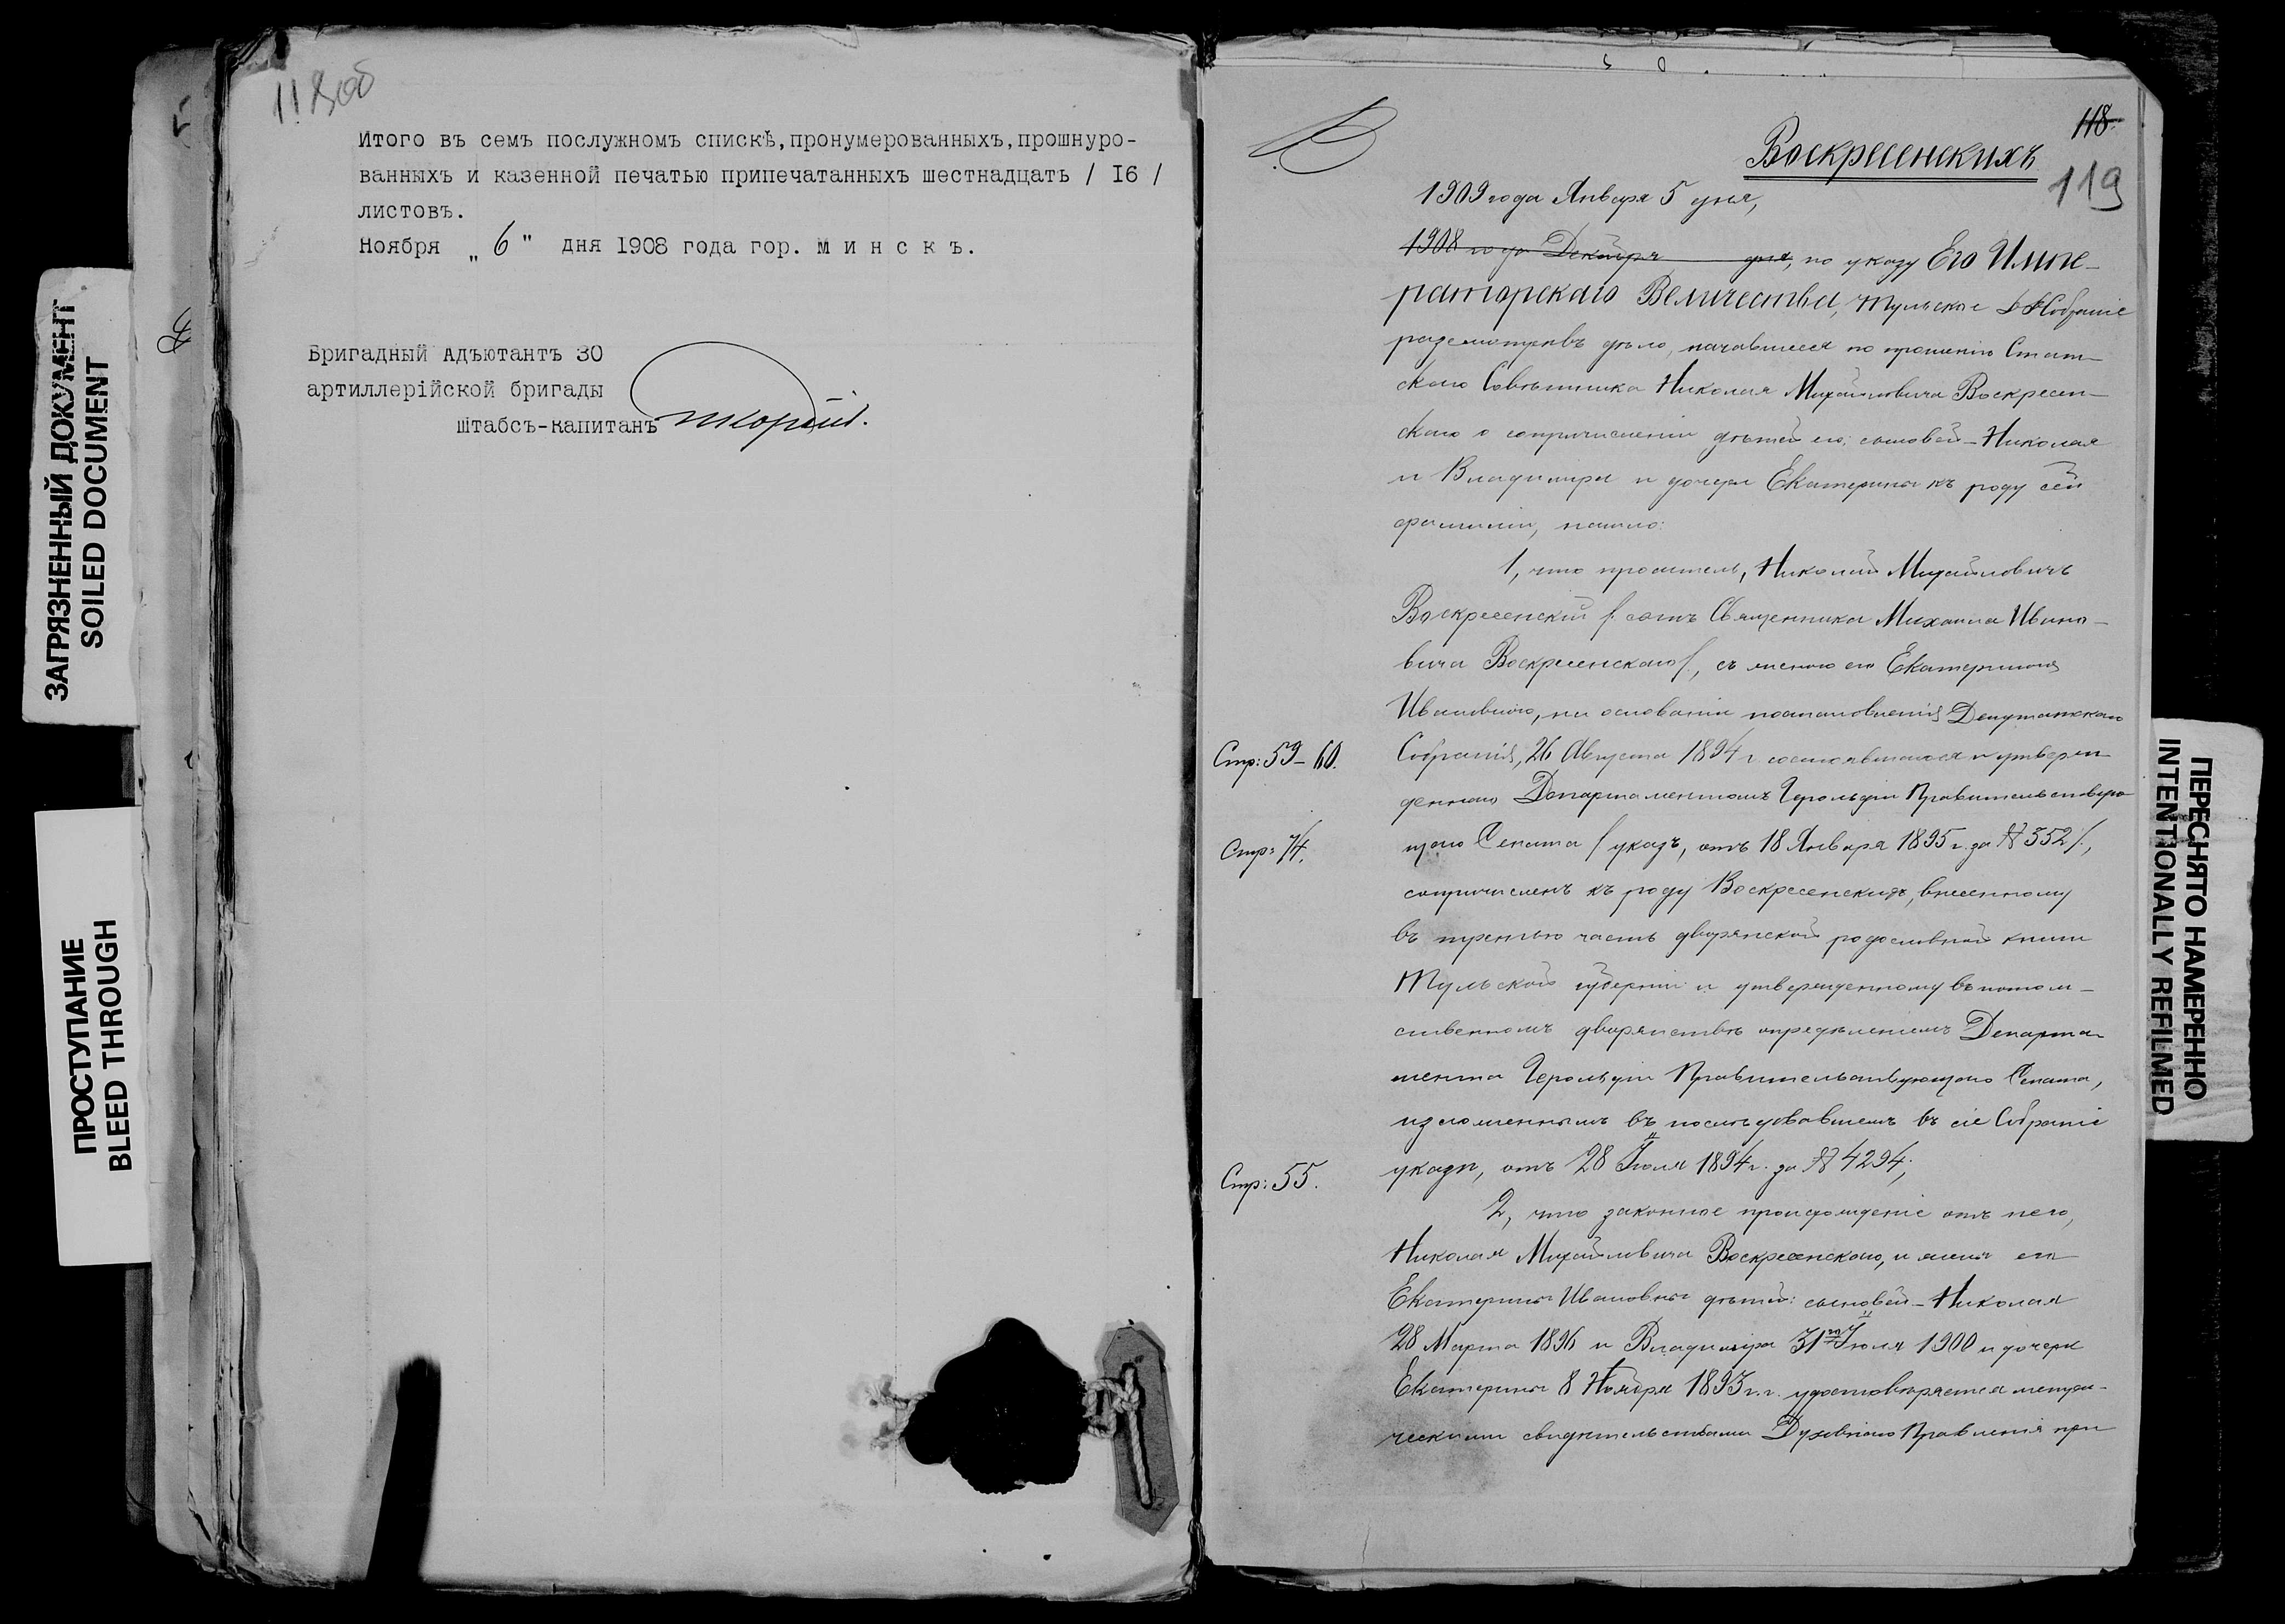 ЗАГРЯЗНЕННЫЙ ДОКУМЕНТ
SOILED DOCUMENT
ПРОСТУПАНИЕ
BLEED THROUGH
Итого въ семъ послужномъ спискѣ, пронумерованныхъ, прошнуро-
ванныхъ и казенной печатью припечатанныхъ шестнадцать / I6 /
листовъ.
Ноября „ 6 " дня 1908 года гор. М и н с к ъ.
Бригадный Адъютантъ 30
артиллерійской бригады
Штабсъ-капитанъ
118
Воскресенскихъ
119
1909 года Января 5 дня,
1908 года Декабря дня, по указу Его Импе-
раторскаго Величества, Тульское Д. Собраніе
разсмотрѣвъ дѣло, начавшееся по прошенію Стат-
скаго Совѣтника Николая Михайловича Воскресен-
скаго о сопричисленіи дѣтей его: сыновей - Николая
и Владимира и дочери Екатерины къ роду сей
фамиліи, нашло:
1, что проситель, Николай Михайловичъ
Воскресенскій /. сынъ Священника Михаила Ивано-
вича Воскресенскаго /., съ женою его Екатериною
Ивановною, на основаніи постановленія Депутатскаго
Стр: 59-60. Собранія, 26 Августа 1894 г. состоявшагося и утверж-
деннаго Департаментомъ Герольдіи Правительствую-
Стр: 74. щаго Сената / указъ, отъ 18 Января 1895 г. за № 352 /.,
сопричисленъ къ роду Воскресенскихъ, внесенному
въ третью часть дворянской родословной книги
Тульской губерніи и утвержденному въ потом-
ственномъ дворянствѣ опредѣленіемъ Департа-
мента Герольдіи Правительствующаго Сената,
изложеннымъ въ послѣдовавшемъ въ сіе Собраніе
Стр: 55. указѣ, отъ 28 Іюля 1894 г. за № 4294;
2, что законное происхожденіе отъ него,
Николая Михайловича Воскресенскаго, и жены его
Екатерины Ивановны дѣтей: сыновей - Николая
28 Марта 1896 и Владимира 31го Іюля 1900 и дочери
Екатерины 8 Ноября 1893 г.г. удостовѣряется метри-
ческими свидѣтельствами Духовнаго Правленія при
ПЕРЕСНЯТО НАМЕРЕННО
INTENTIONALLY REFILMED